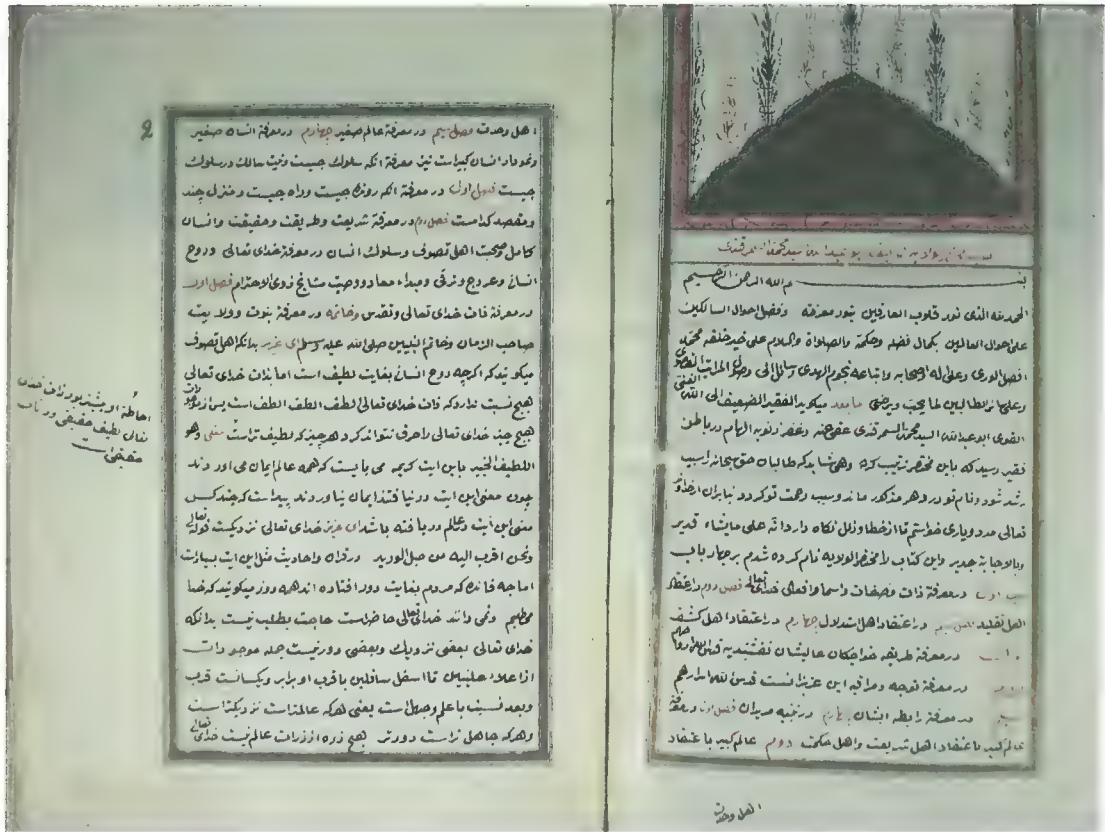 بسم الله الرحمن الرحيم
الحمد لله الذی نور قلوب العارفین بنور معرفته وفضل احوال السالکین
علی احوال العالمین بکمال فضله وحکمته والصلواة والسلام علی خیر خلقه محمد
افضل الوری وعلی اله اصحابه واتباعه نجوم الهدی
وعلی سائر الطالبین لما یحب ویرضی ما بعد میکوید الفقیر الضعیف الی الله الغنی
القوی ابو عبدالله السید محمد السمرقندی عفی عنه وغفر ذنوبه الهام در باطن
فقیر رسید که باین مختصر ترتیب کرده وهی شاید که طالبان حق سبحانه را سبب
رشد شود ونام تو در دهر مذکور ماند وسبب رحمت تو کردد بنابران از خدای
تعالی مدد ویاری خواستم تا از خطا وزلل نکاه دارد انه علی ما یشاء قدیر
وبالاجابة جدیر واین کتاب را مختصر الولایه نام کرده شدم بر چهار باب
در معرفة ذات وصفات واسما وافعال خدای تعالی فصل دوم در اعتقاد
اهل تقلید در اعتقاد اهل استدلال چهارم در اعتقاد اهل کشف
در معرفة طریقه خواجکان عالیشان نقشبندیه قدس الله ارواحهم
در معرفة توجه ومراقبه این عزیزانست قدس الله اسرارهم
در معرفة رابطه ایشان چهارم در تنبیه مریدان فصل اول در معرفة
عالم کبیر با عتقاد اهل شریعت واهل حکمت دوم عالم کبیر با عتقاد
اهل وحدت
2
اهل وحدت فصل سیم در معرفة عالم صغیر چهارم در معرفة انسان صغیر
ونمودار انسان کبیر است نیز معرفة انکه سلوک چیست ونیت سالک در سلوک
چیست فصل اول در معرفة انکه رونده چیست وراه چیست ومنزل چند
ومقصد کدامست فصل دوم در معرفة شریعت وطریقت وحقیقت وانسان
کامل وصحبت اهل تصوف وسلوک انسان در معرفة خدای تعالی وروح
انسانی وعروج وترقی ومبداء ومعاد ووصیت مشایخ ذوی الاحترام فصل اول
در معرفة ذات خدای تعالی وتقدس وخاتمه در معرفة نبوت وولایت
صاحب الزمان وخاتم النبیین صلی الله علیه وسلم ای عزیز بدانکه اهل تصوف
میکویند که اکرچه روح انسانی بغایت لطیف است اما بذات خدای تعالی
هیچ نسبت ندارد که ذات خدای تعالی لطف الطف الطف است پس از
هیچ چیز خدای تعالی را حرف نتواند کرد هر چیز که لطیف تر است وهو
اللطیف الخبیر باین ایت کریمه می بایست که همه عالم ایمان می اوردند
چون معنی این ایت در نیافتند ایمان نیاوردند پیداست که چند کس
معنی این ایت در عالم دریافته باشد ای عزیز خدای تعالی نزدیکست قوله تعالی
ونحن اقرب الیه من حبل الورید در قران واحادیث مثل این ایت بسیارست
اما چه فائده که مردم بغایت دور افتاده اند همه روز میکویند که خدا
می طلبیم ونمی دانند خدای تعالی حاضرست حاجت بطلب نیست بدانکه
خدای تعالی ببعضی نزدیک وببعضی دور نیست جمله موجودات
از اعلاء علیین تا اسفل سافلین با قرب او برابر ویکسانت قرب
وبعد نسبت با علم وجهل است یعنی هر که عالمتر است نزدیکتر است
وهر که جاهل تر است دورتر هیچ ذره از ذرات عالم نیست خدای تعالی